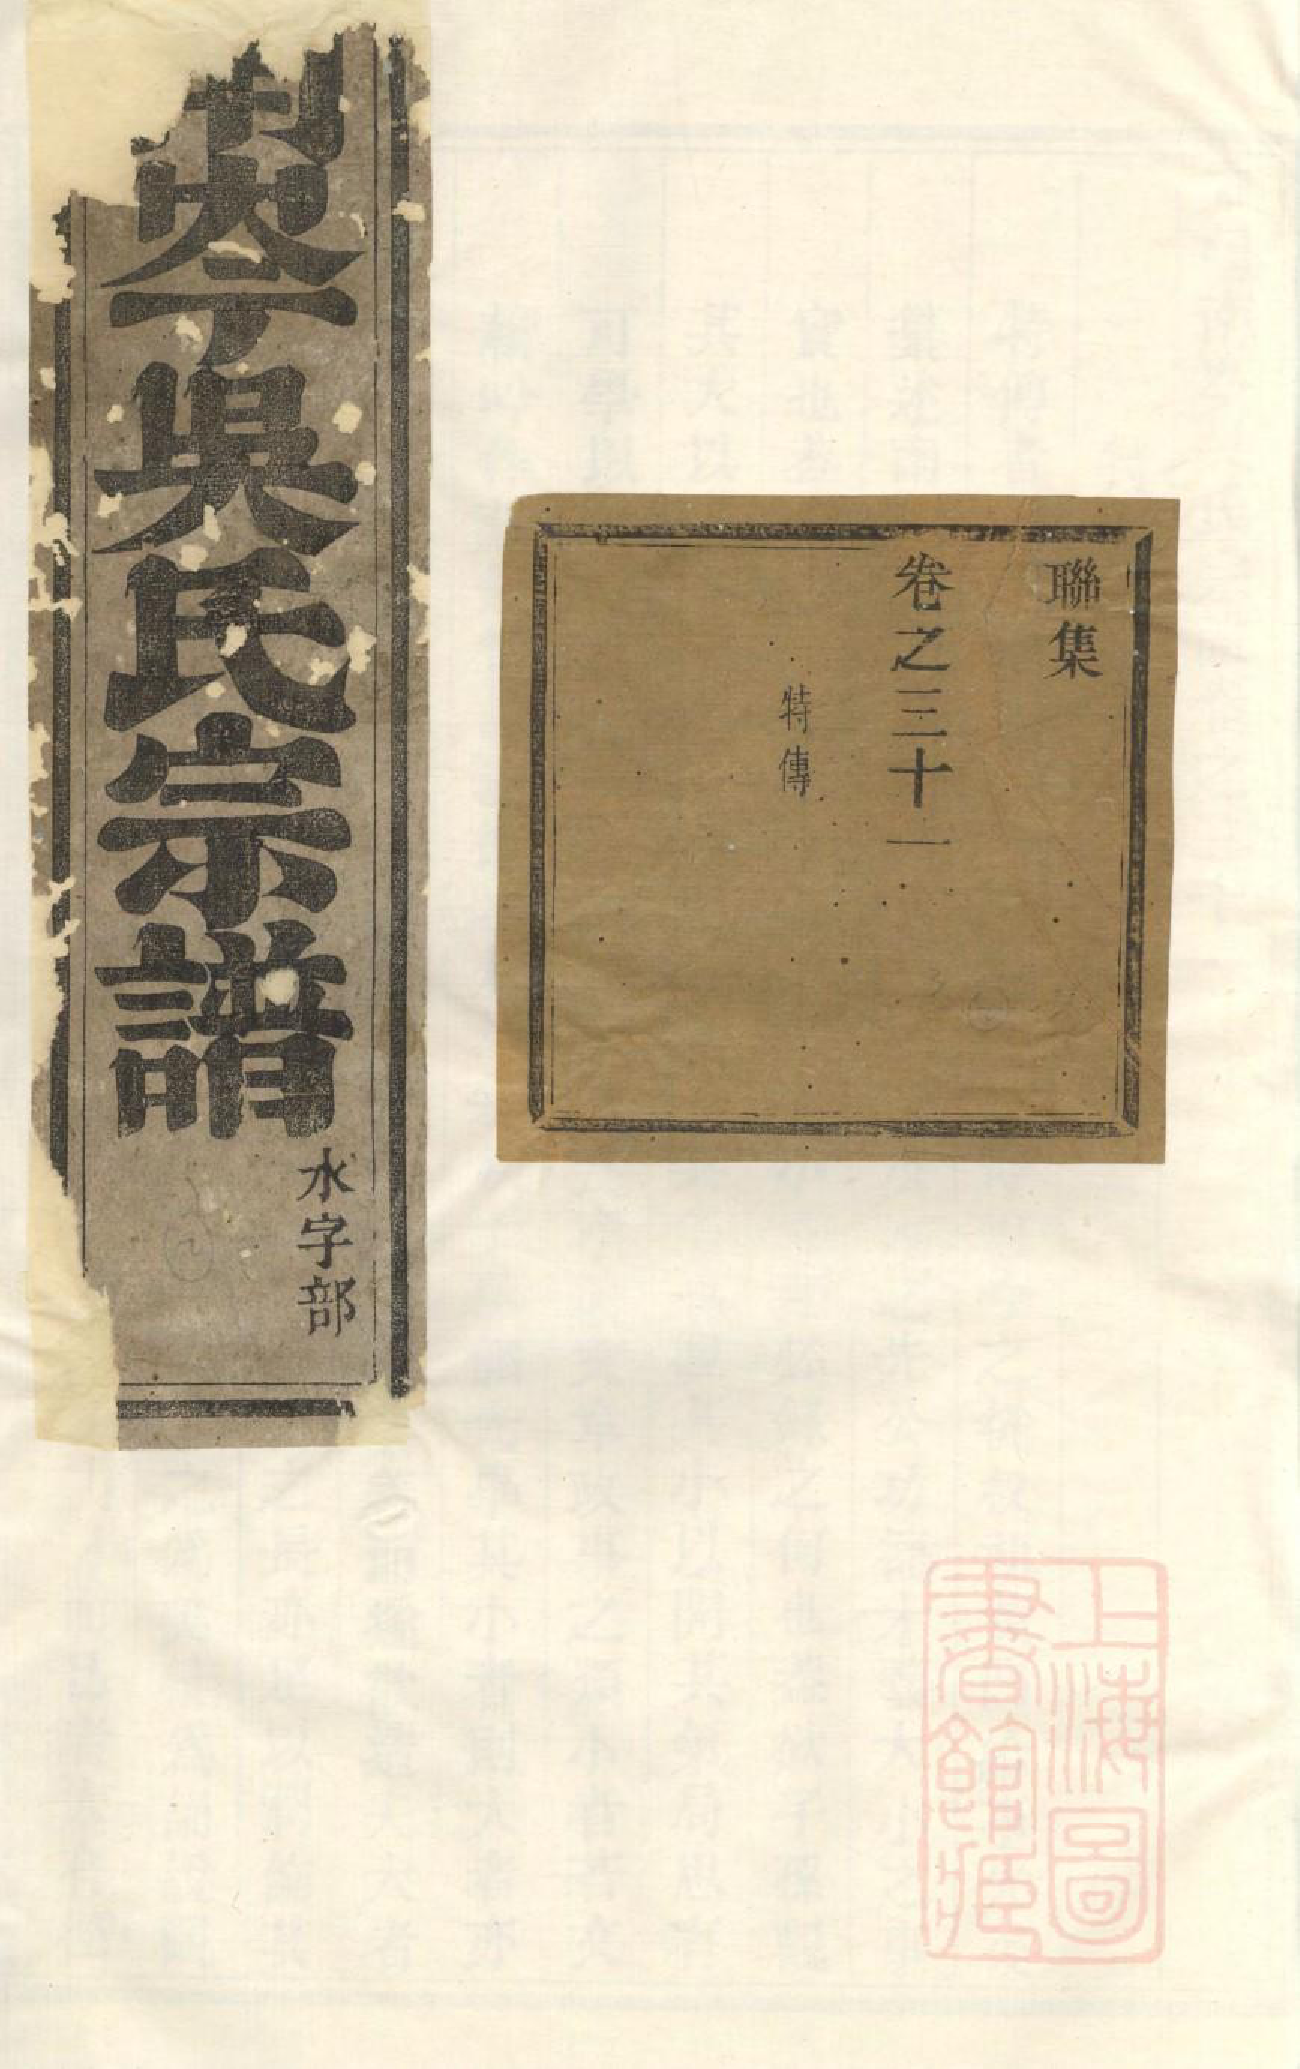 聯集
卷之三十一
特傳
吳氏宗譜
水字部
上海圖
書館藏